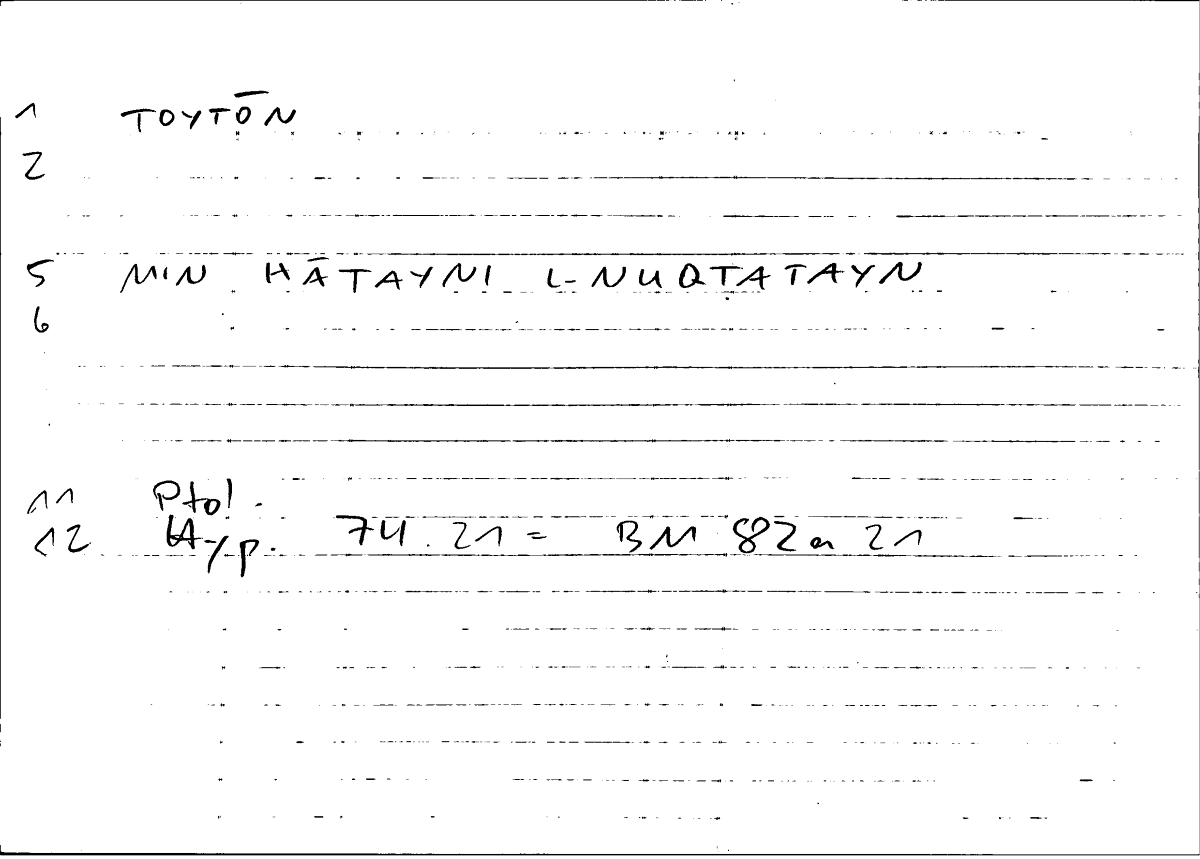 1 TOYTŌN
2
5 MIN HĀTAYNI L-NUQṬATAYN
6
11 Ptol.
12 Hyp. 74.21 = BM 82a 21